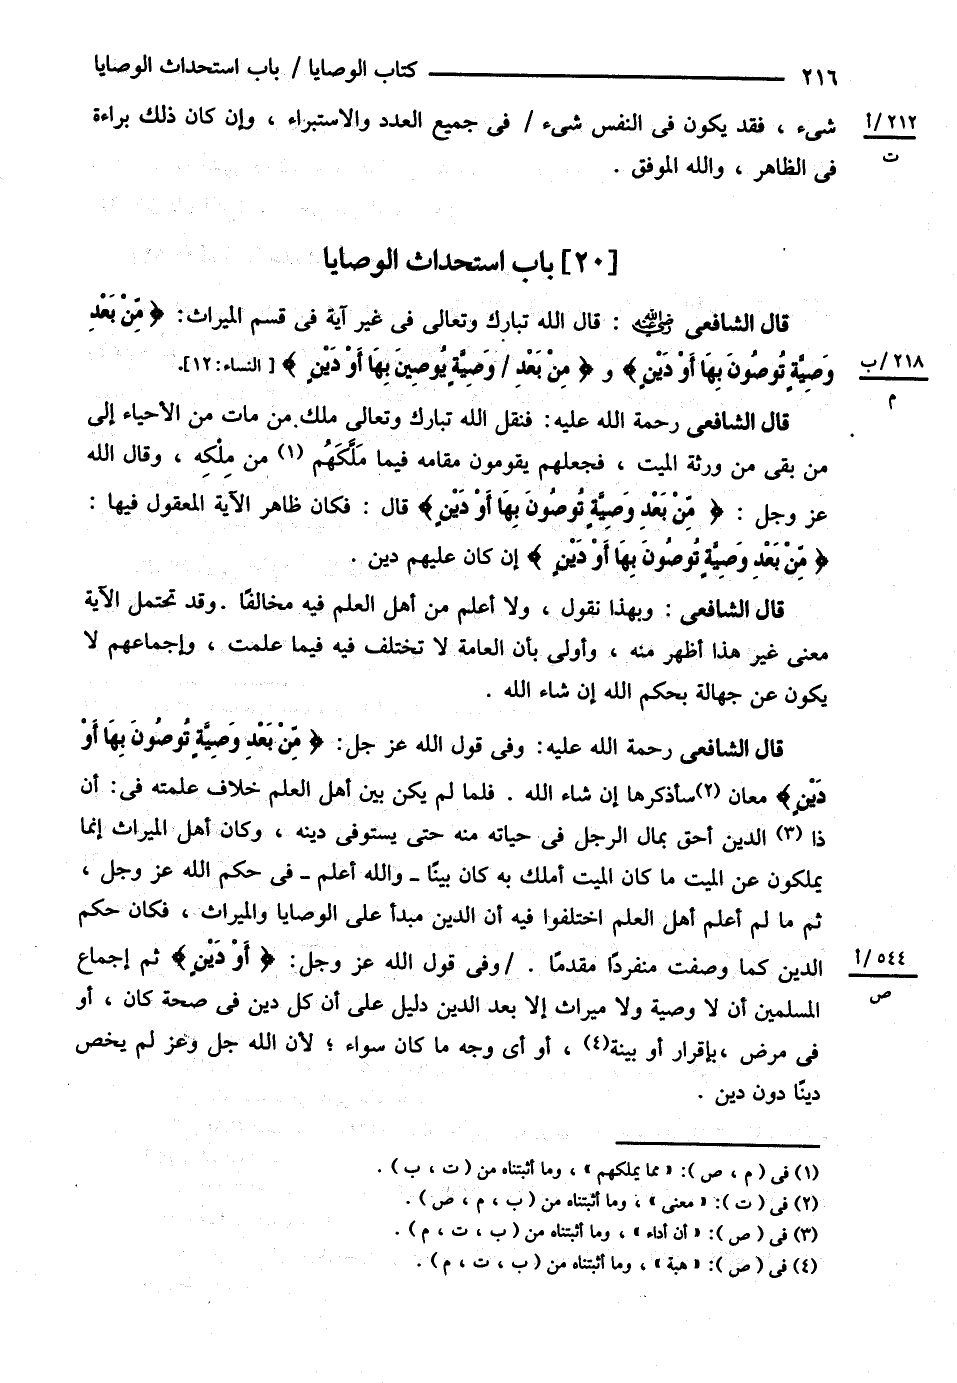 ٢١٦ ــــــــــــــــ كتاب الوصايا / باب استحداث الوصايا
شىء ، فقد يكون فى النفس شىء / فى جميع العدد والاستبراء ، وإن كان ذلك براءة
٢١٢/أ
ت
فى الظاهر ، والله الموفق .
[٢٠] باب استحداث الوصايا
قال الشافعى رضي الله عنه : قال الله تبارك وتعالى فى غير آية فى قسم الميراث: ﴿ مِّنْ بَعْدِ
وَصِيَّةٍ تُوصُونَ بِهَا أَوْ دَيْنٍ ﴾ و ﴿ مِنْ بَعْدِ / وَصِيَّةٍ يُوصِينَ بِهَا أَوْ دَيْنٍ ﴾ [ النساء: ١٢].
٢١٨/ب
م
قال الشافعى رحمة الله عليه: فنقل الله تبارك وتعالى ملك من مات من الأحياء إلى
من بقى من ورثة الميت ، فجعلهم يقومون مقامه فيما مَلَّكَهُم (١) من مِلْكِه ، وقال الله
عز وجل : ﴿ مِّنْ بَعْدِ وَصِيَّةٍ تُوصُونَ بِهَا أَوْ دَيْنٍ ﴾ قال : فكان ظاهر الآية المعقول فيها :
﴿ مِّنْ بَعْدِ وَصِيَّةٍ تُوصُونَ بِهَا أَوْ دَيْنٍ ﴾ إن كان عليهم دين .
قال الشافعى : وبهذا نقول ، ولا أعلم من أهل العلم فيه مخالفًا . وقد تحتمل الآية
معنى غير هذا أظهر منه ، وأولى بأن العامة لا تختلف فيه فيما علمت ، وإجماعهم لا
يكون عن جهالة بحكم الله إن شاء الله .
قال الشافعى رحمة الله عليه: وفى قول الله عز جل: ﴿ مِّنْ بَعْدِ وَصِيَّةٍ تُوصُونَ بِهَا أَوْ
دَيْنٍ ﴾ معان (٢) سأذكرها إن شاء الله . فلما لم يكن بين أهل العلم خلاف علمته فى: أن
ذا (٣) الدين أحق بمال الرجل فى حياته منه حتى يستوفى دينه ، وكان أهل الميراث إنما
يملكون عن الميت ما كان الميت أملك به كان بينًا ـ والله أعلم ـ فى حكم الله عز وجل ،
ثم ما لم أعلم أهل العلم اختلفوا فيه أن الدين مبدأ على الوصايا والميراث ، فكان حكم
الدين كما وصفت منفردًا مقدمًا . / وفى قول الله عز وجل: ﴿ أَوْ دَيْنٍ ﴾ ثم إجماع
٥٤٤/أ
ص
المسلمين أن لا وصية ولا ميراث إلا بعد الدين دليل على أن كل دين فى صحة كان ، أو
فى مرض ، بإقرار أو بينة (٤) ، أو أى وجه ما كان سواء ؛ لأن الله جل وعز لم يخص
دينًا دون دين .
(١) فى ( م ، ص ): « مما يملكهم » ، وما أثبتناه من ( ت ، ب ) .
(٢) فى ( ت ): « معنى » ، وما أثبتناه من ( ب ، م ، ص ) .
(٣) فى ( ص ): « أن أداء » ، وما أثبتناه من ( ب ، ت ، م ) .
(٤) فى ( ص ): « هبة » ، وما أثبتناه من ( ب ، ت ، م ) .